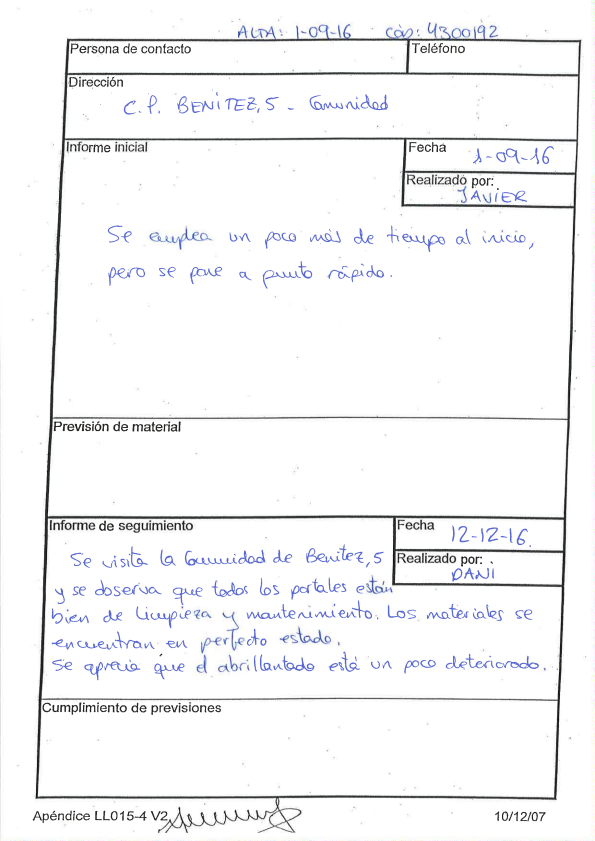 ALTA: 1-09-16 CÓD: 4300192
Persona de contacto
Teléfono
Dirección
C.P. BENITEZ, 5 - Comunidad
Informe inicial
Fecha
1-09-16
Realizado por:
JAVIER
Se emplea un poco más de tiempo al inicio,
pero se pone a punto rápido.
Previsión de material
Informe de seguimiento
Fecha
12-12-16.
Realizado por:
DANI
Se visita la Comunidad de Benitez, 5
y se observa que todos los portales están
bien de limpieza y mantenimiento. Los materiales se
encuentran en perfecto estado.
Se aprecia que el abrillantado está un poco deteriorado.
Cumplimiento de previsiones
Apéndice LL015-4 V2
10/12/07